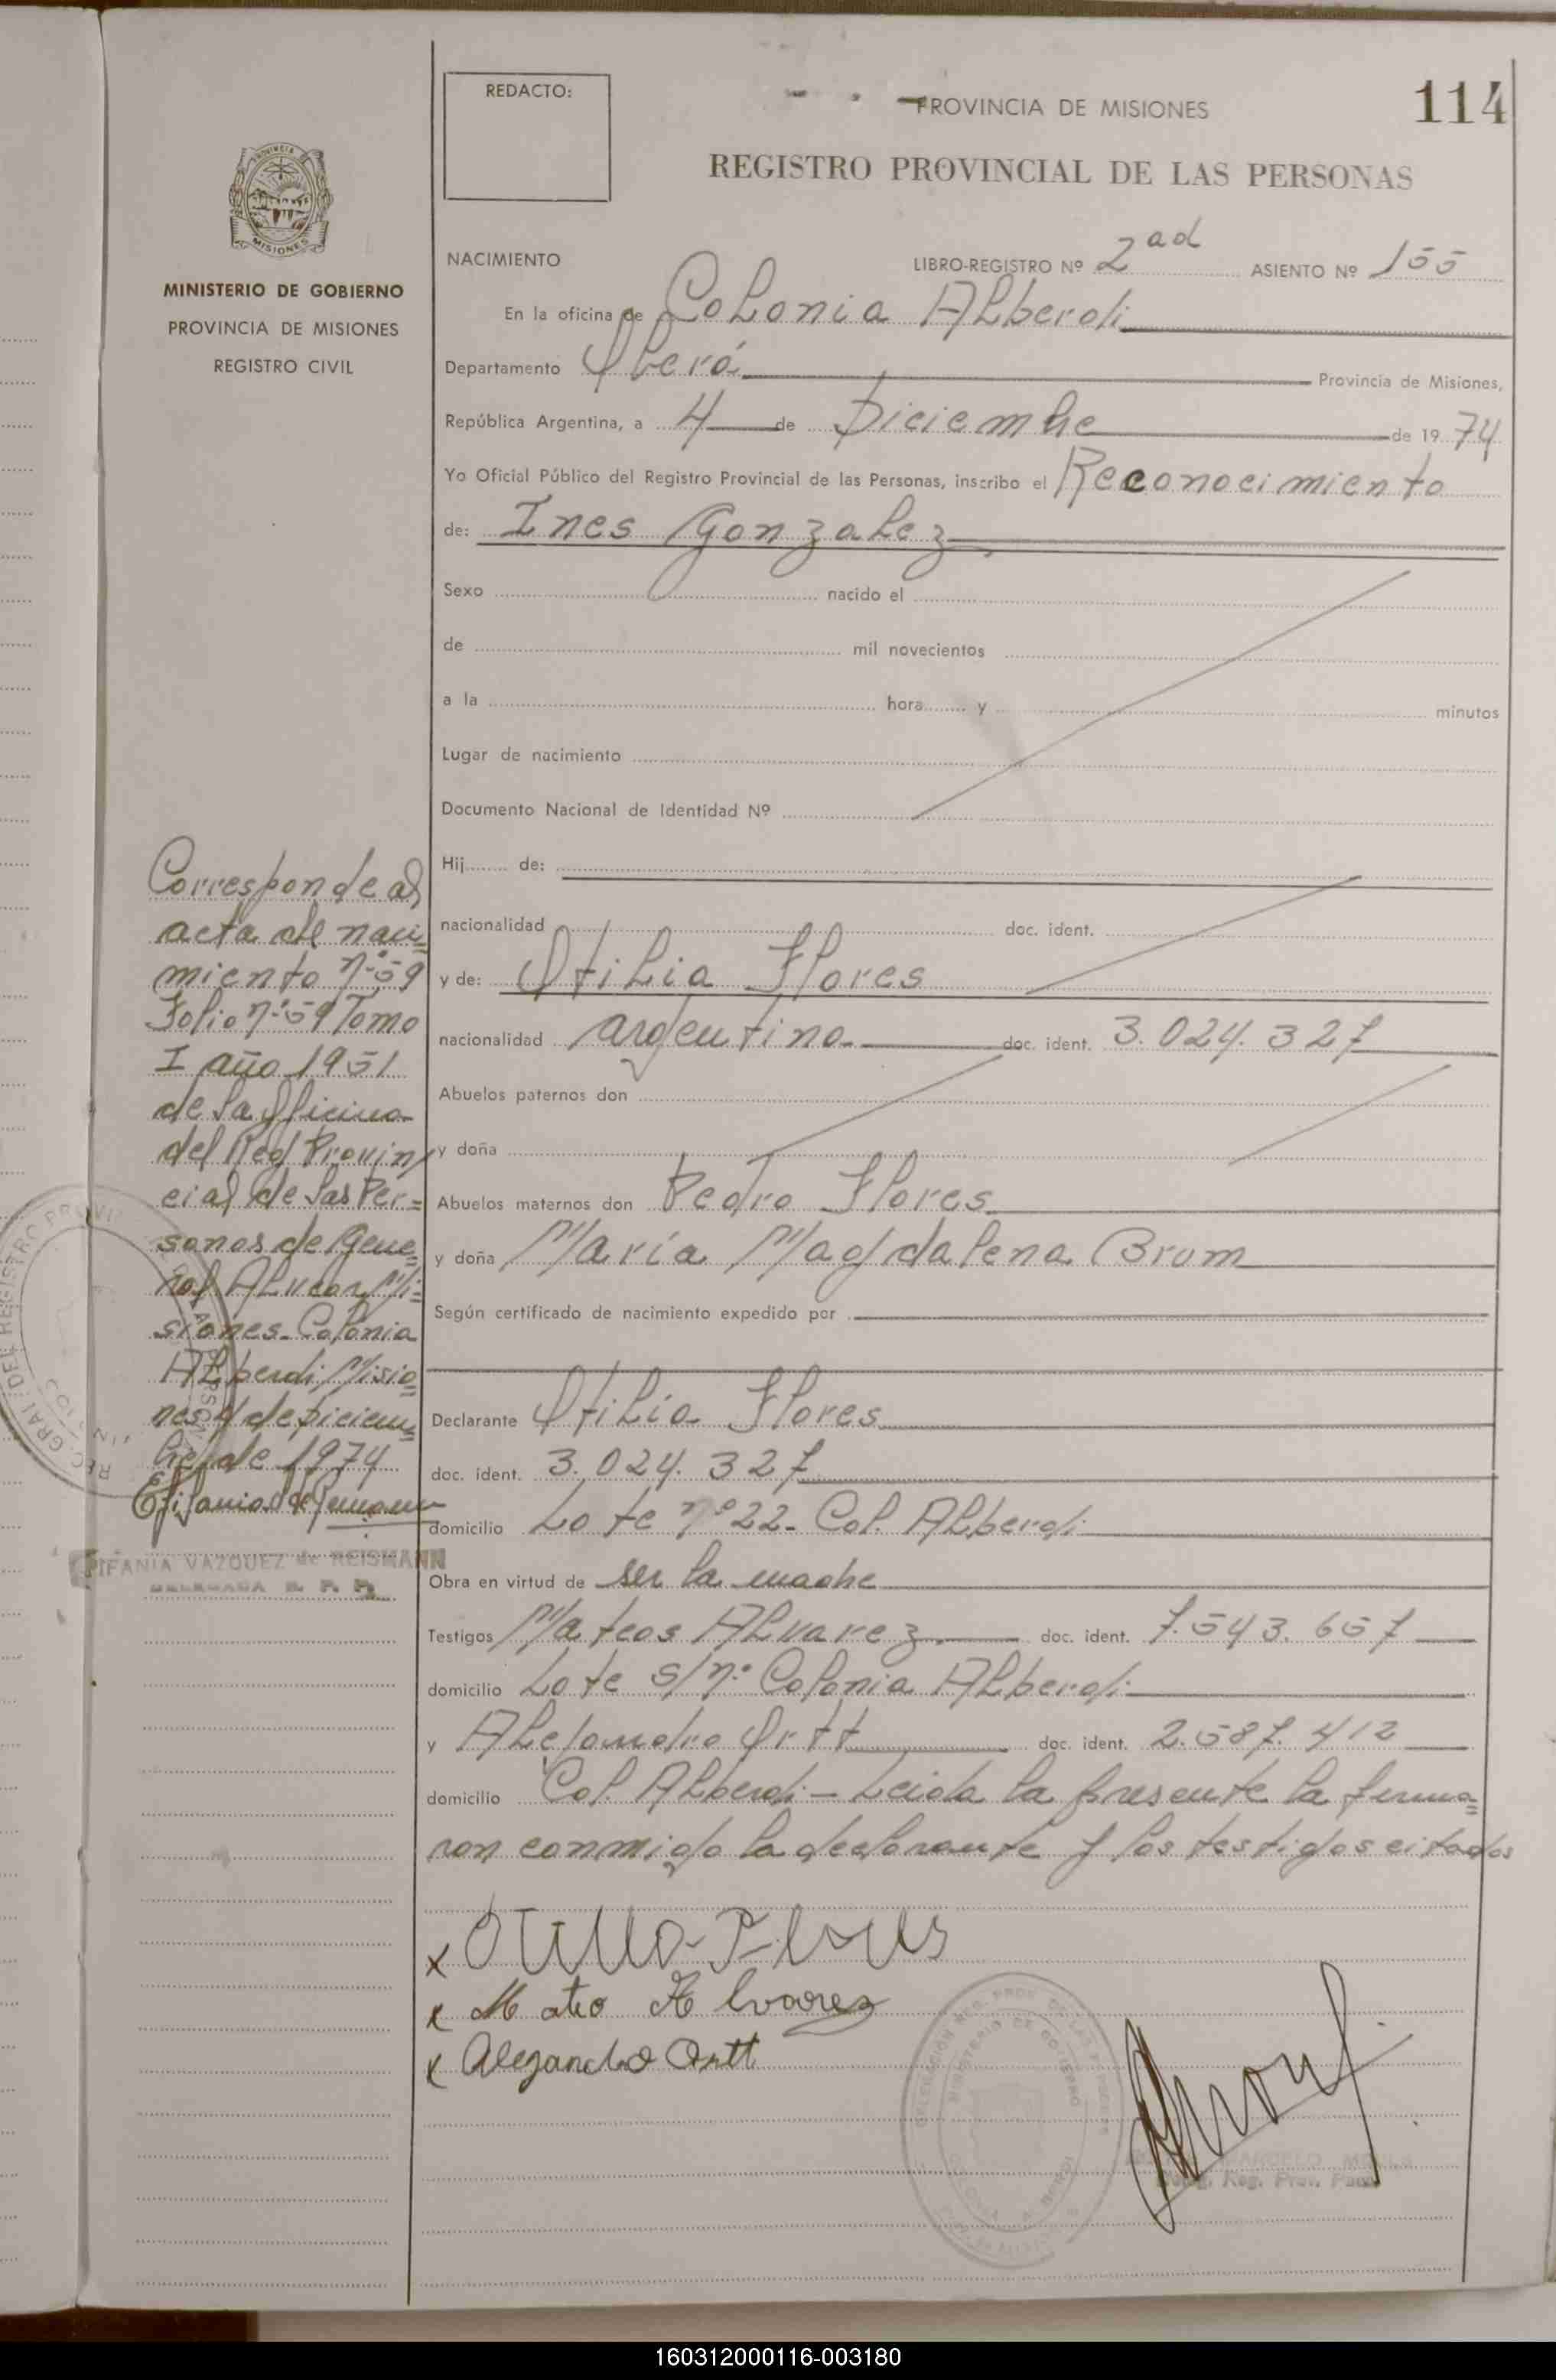 114
REDACTO:
PROVINCIA DE MISIONES
REGISTRO PROVINCIAL DE LAS PERSONAS
PROVINCIA DE
MISIONES
MINISTERIO DE GOBIERNO
PROVINCIA DE MISIONES
REGISTRO CIVIL
NACIMIENTO LIBRO-REGISTRO Nº 2ad ASIENTO Nº 155
En la oficina de Colonia Alberdi
Departamento Oberá Provincia de Misiones,
República Argentina, a 4 de Diciembre de 19 74
Yo Oficial Público del Registro Provincial de las Personas, inscribo el Reconocimiento
de: Ines Gonzalez
Sexo nacido el
de mil novecientos
a la hora y minutos
Lugar de nacimiento
Documento Nacional de Identidad Nº
Hij de:
nacionalidad doc. ident.
y de: Otilia Flores
nacionalidad argentina doc. ident. 3.024.327
Abuelos paternos don
y doña
Abuelos maternos don Pedro Flores
y doña María Magdalena Brum
Según certificado de nacimiento expedido por
Declarante Otilia Flores
doc. ident. 3.024.327
domicilio Lote nº 22- Col. Alberdi
Obra en virtud de ser la madre
Testigos Mateos Alvarez doc. ident. 7.543.657
domicilio Lote s/nº Colonia Alberdi
y Alejandro Ortt doc. ident. 2.587.412
domicilio Col. Alberdi - Leida la presente la firma=
ron conmigo la declarante y los testigos citados
Corresponde al
acta de naci=
miento nº 59
Folio nº 59 Tomo
I año 1951
de la Oficina
del Reg Provin
cial de las Per=
sonas de Gene=
ral Alvear Mi=
siones- Colonia
Alberdi Misio=
nes 4 de Diciem=
bre de 1974
EPIFANIA VAZQUEZ de REISMANN
DELEGADA R. P. P.
x Otilia Flores
x Mateo Alvarez
x Alejandro Ortt
MARCELO
Reg. Prov. Pers.
160312000116-003180